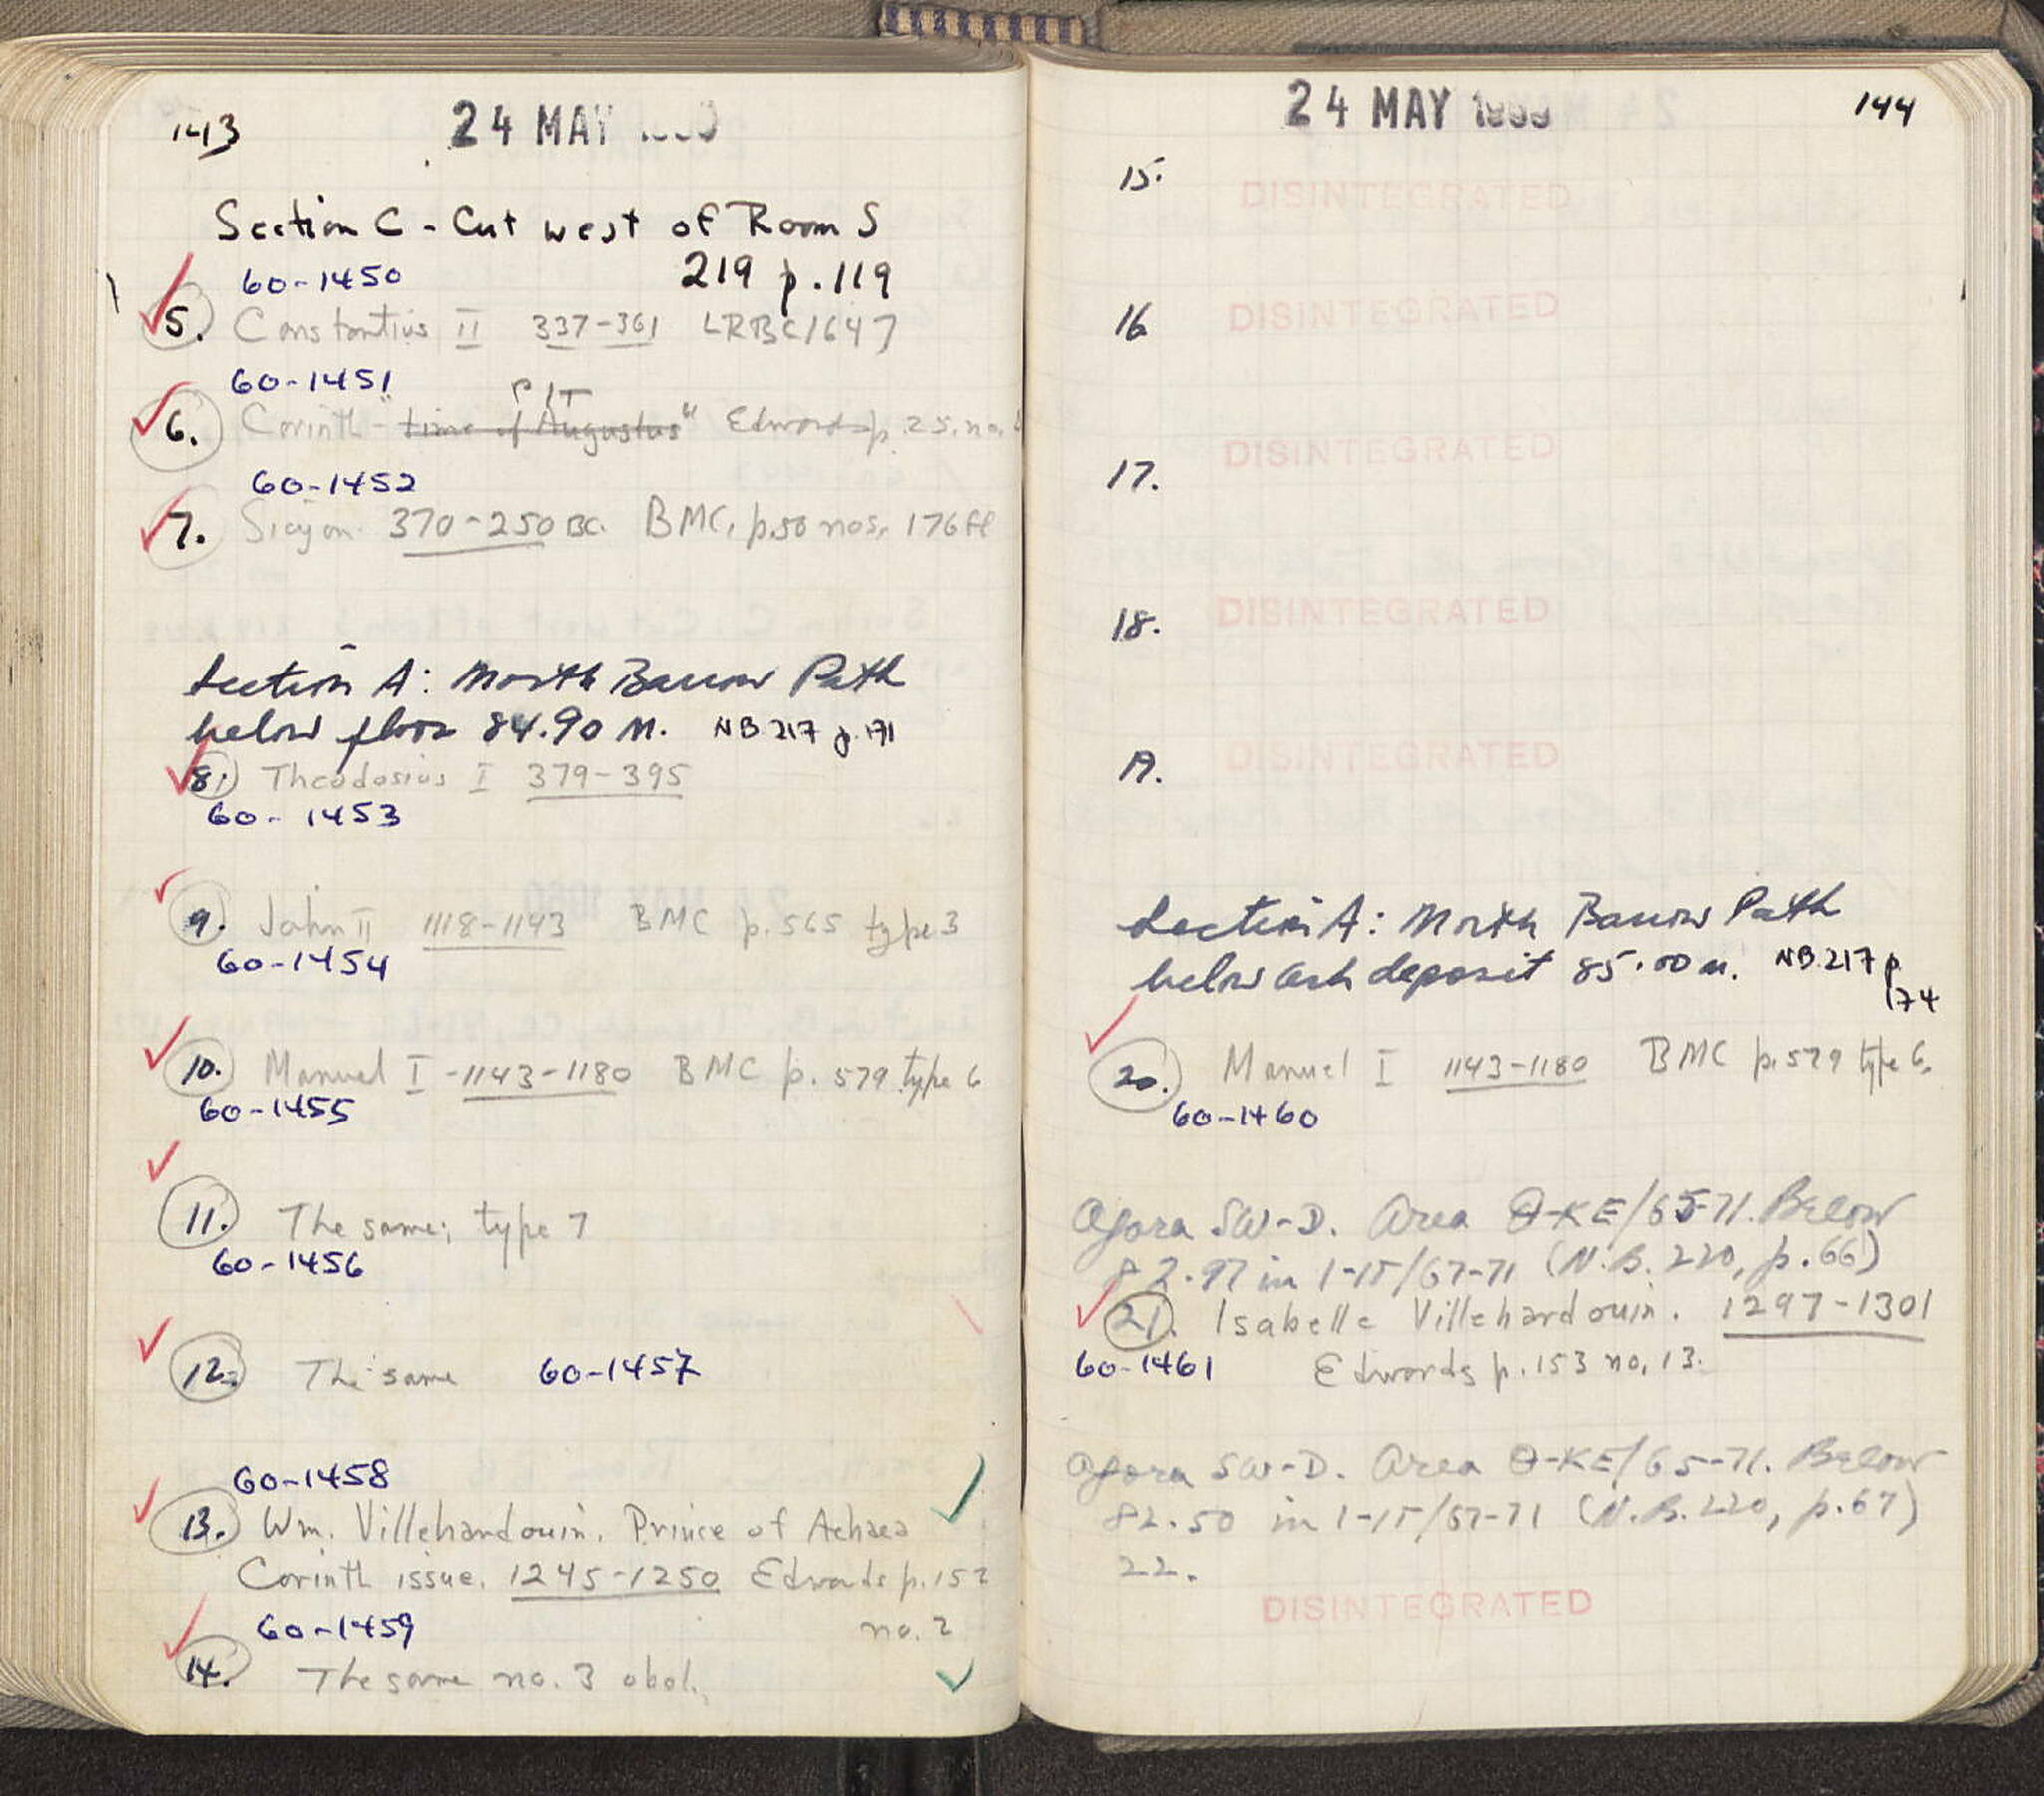 143
24 MAY
Section C - Cut west of Room S
60-1450 219 p. 119
5. Constantius II 337-361 LRBC 1647
60-1451 PIT
6. Corinth - "time of Augustus" Edwards p. 25, no.
60-1452
7. Sicyon 370-250 BC. BMC, p. 50 nos. 176 ff
Section A: North Barrow Path
below floor 84.90 M. NB 217 p. 171
8. Theodosius I 379-395
60-1453
9. John II 1118-1143 BMC p. 565 type 3
60-1454
10. Manuel I - 1143-1180 BMC p. 579 type 6
60-1455
11. The same; type 7
60-1456
12. The same 60-1457
60-1458
13. Wm. Villehardouin. Prince of Achaea
Corinth issue. 1245-1250 Edwards p. 152
60-1459 no. 2
14. The same no. 3 obol.
24 MAY 1960 144
15. DISINTEGRATED
16 DISINTEGRATED
17. DISINTEGRATED
18. DISINTEGRATED
19. DISINTEGRATED
Section A: North Barrow Path
below ash deposit 85.00 m. NB 217 p.
174
20. Manuel I 1143-1180 BMC p. 579 type 6.
60-1460
Agora SW-D. Area Θ-KE/65-71. Below
82.97 in I-IΓ/67-71 (N.B. 220, p. 66)
21. Isabelle Villehardouin. 1297-1301
60-1461 Edwards p. 153 no. 13.
Agora SW-D. Area Θ-KE/65-71. Below
82.50 in I-IΓ/67-71 (N.B. 220, p. 67)
22.
DISINTEGRATED